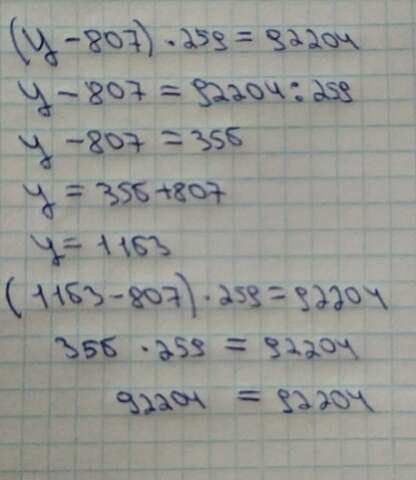 (y - 807) · 259 = 92204
y - 807 = 92204 : 259
y - 807 = 356
y = 356 + 807
y = 1163
(1163 - 807) · 259 = 92204
356 · 259 = 92204
92204 = 92204